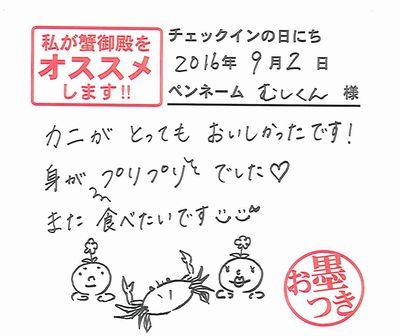 私が蟹御殿を
オススメ
します!!
チェックインの日にち
2016年 9月2日
ペンネーム むしくん 様
カニが とっても おいしかったです!
身が プリプリ でした♡
また 食べたいです
お墨つき